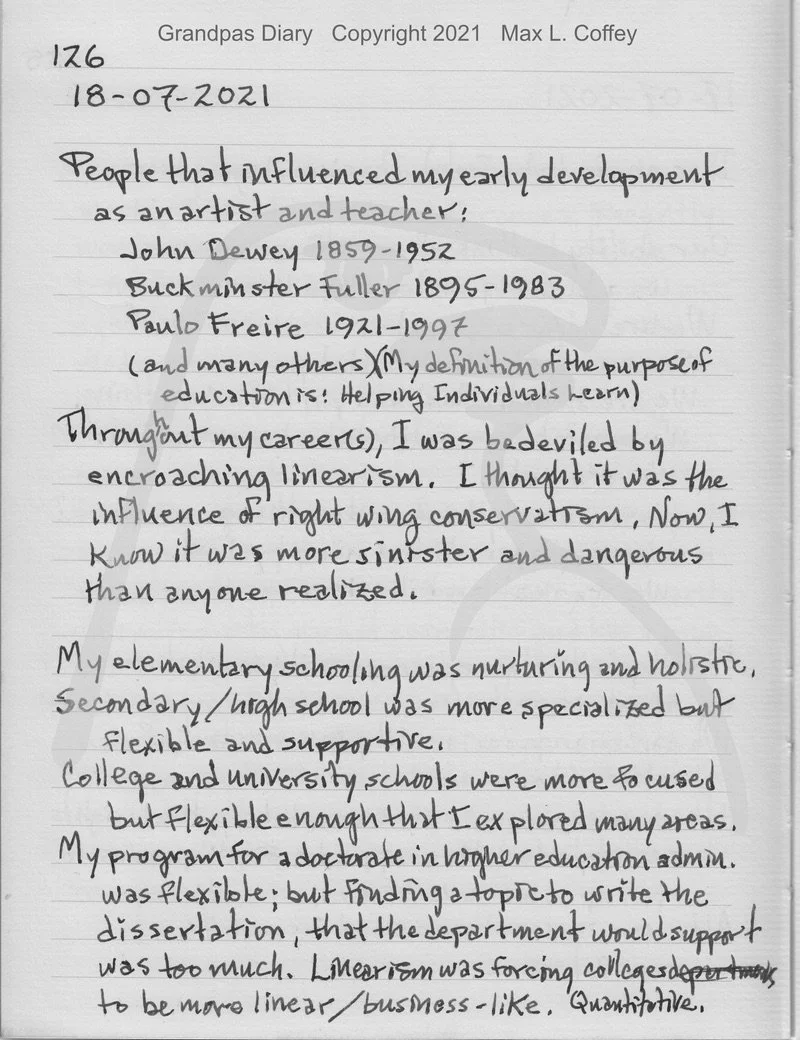 Grandpas Diary Copyright 2021 Max L. Coffey
126
18-07-2021
People that influenced my early development
as an artist and teacher:
John Dewey 1859-1952
Buckminster Fuller 1895-1983
Paulo Freire 1921-1997
(and many others)(My definition of the purpose of
education is: Helping Individuals Learn)
Throughout my career(s), I was bedeviled by
encroaching linearism. I thought it was the
influence of right wing conservatism. Now, I
know it was more sinister and dangerous
than anyone realized.
My elementary schooling was nurturing and holistic.
Secondary/high school was more specialized but
flexible and supportive.
College and university schools were more focused
but flexible enough that I explored many areas.
My program for a doctorate in higher education admin.
was flexible; but finding a topic to write the
dissertation, that the department would support
was too much. Linearism was forcing colleges departments
to be more linear/business-like. Quantitative.